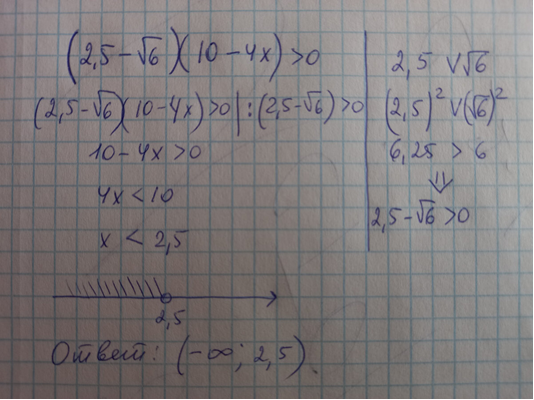 (2,5-√6)(10-4x)>0
(2,5-√6)(10-4x)>0|:(2,5-√6)>0
10-4x>0
4x<10
x<2,5
2,5
Ответ: (-∞; 2,5).
2,5 ∨ √6
(2,5)² ∨ (√6)²
6,25 > 6
⇓
2,5-√6>0